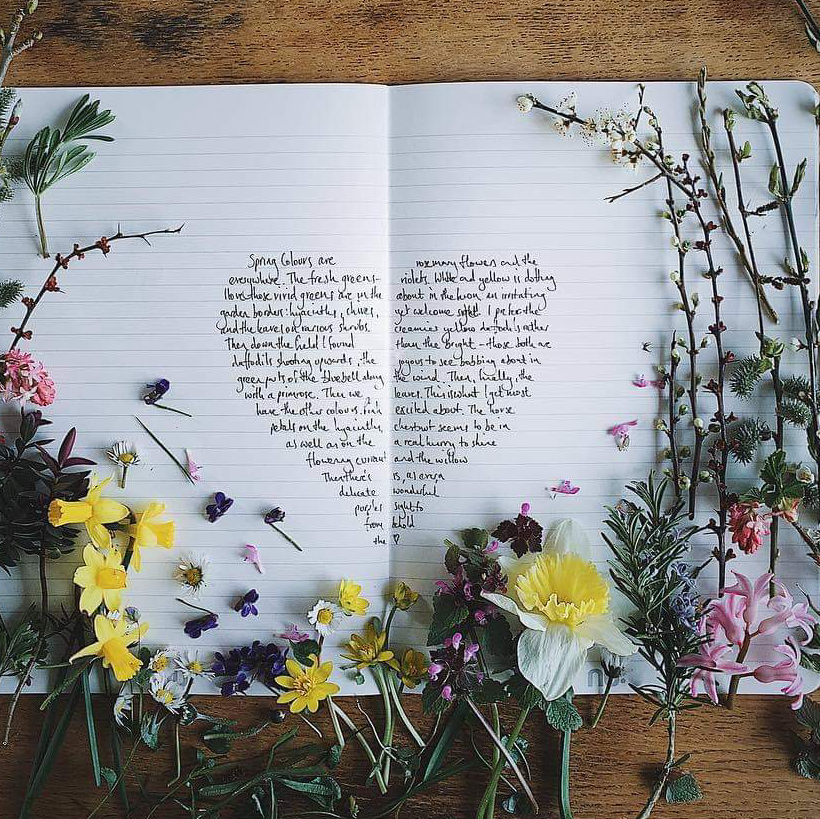 Spring Colours are
everywhere. The fresh greens -
I love those vivid greens are in the
garden borders: hyacinths, chives,
and the leaves on various shrubs.
Then down the field I found
daffodils shooting upwards, the
green puts of the bluebell along
with a primrose. Then we
have the other colours. Pink
petals on the hyacinths,
as well as on the
flowering currant
Then there's
delicate
purples
from
the
rosemary flowers and the
violets. White and yellow is dotting
about in the lawn, an irritating
yet welcome sight. I prefer the
creamier yellow daffodils rather
than the bright - those both are
joyous to see bobbing about in
the wind. Then, finally, the
leaves. This is what I get most
excited about. The horse
chestnut seems to be in
a real hurry to shine
and the willow
is, as ever, a
wonderful
sight to
behold
♡